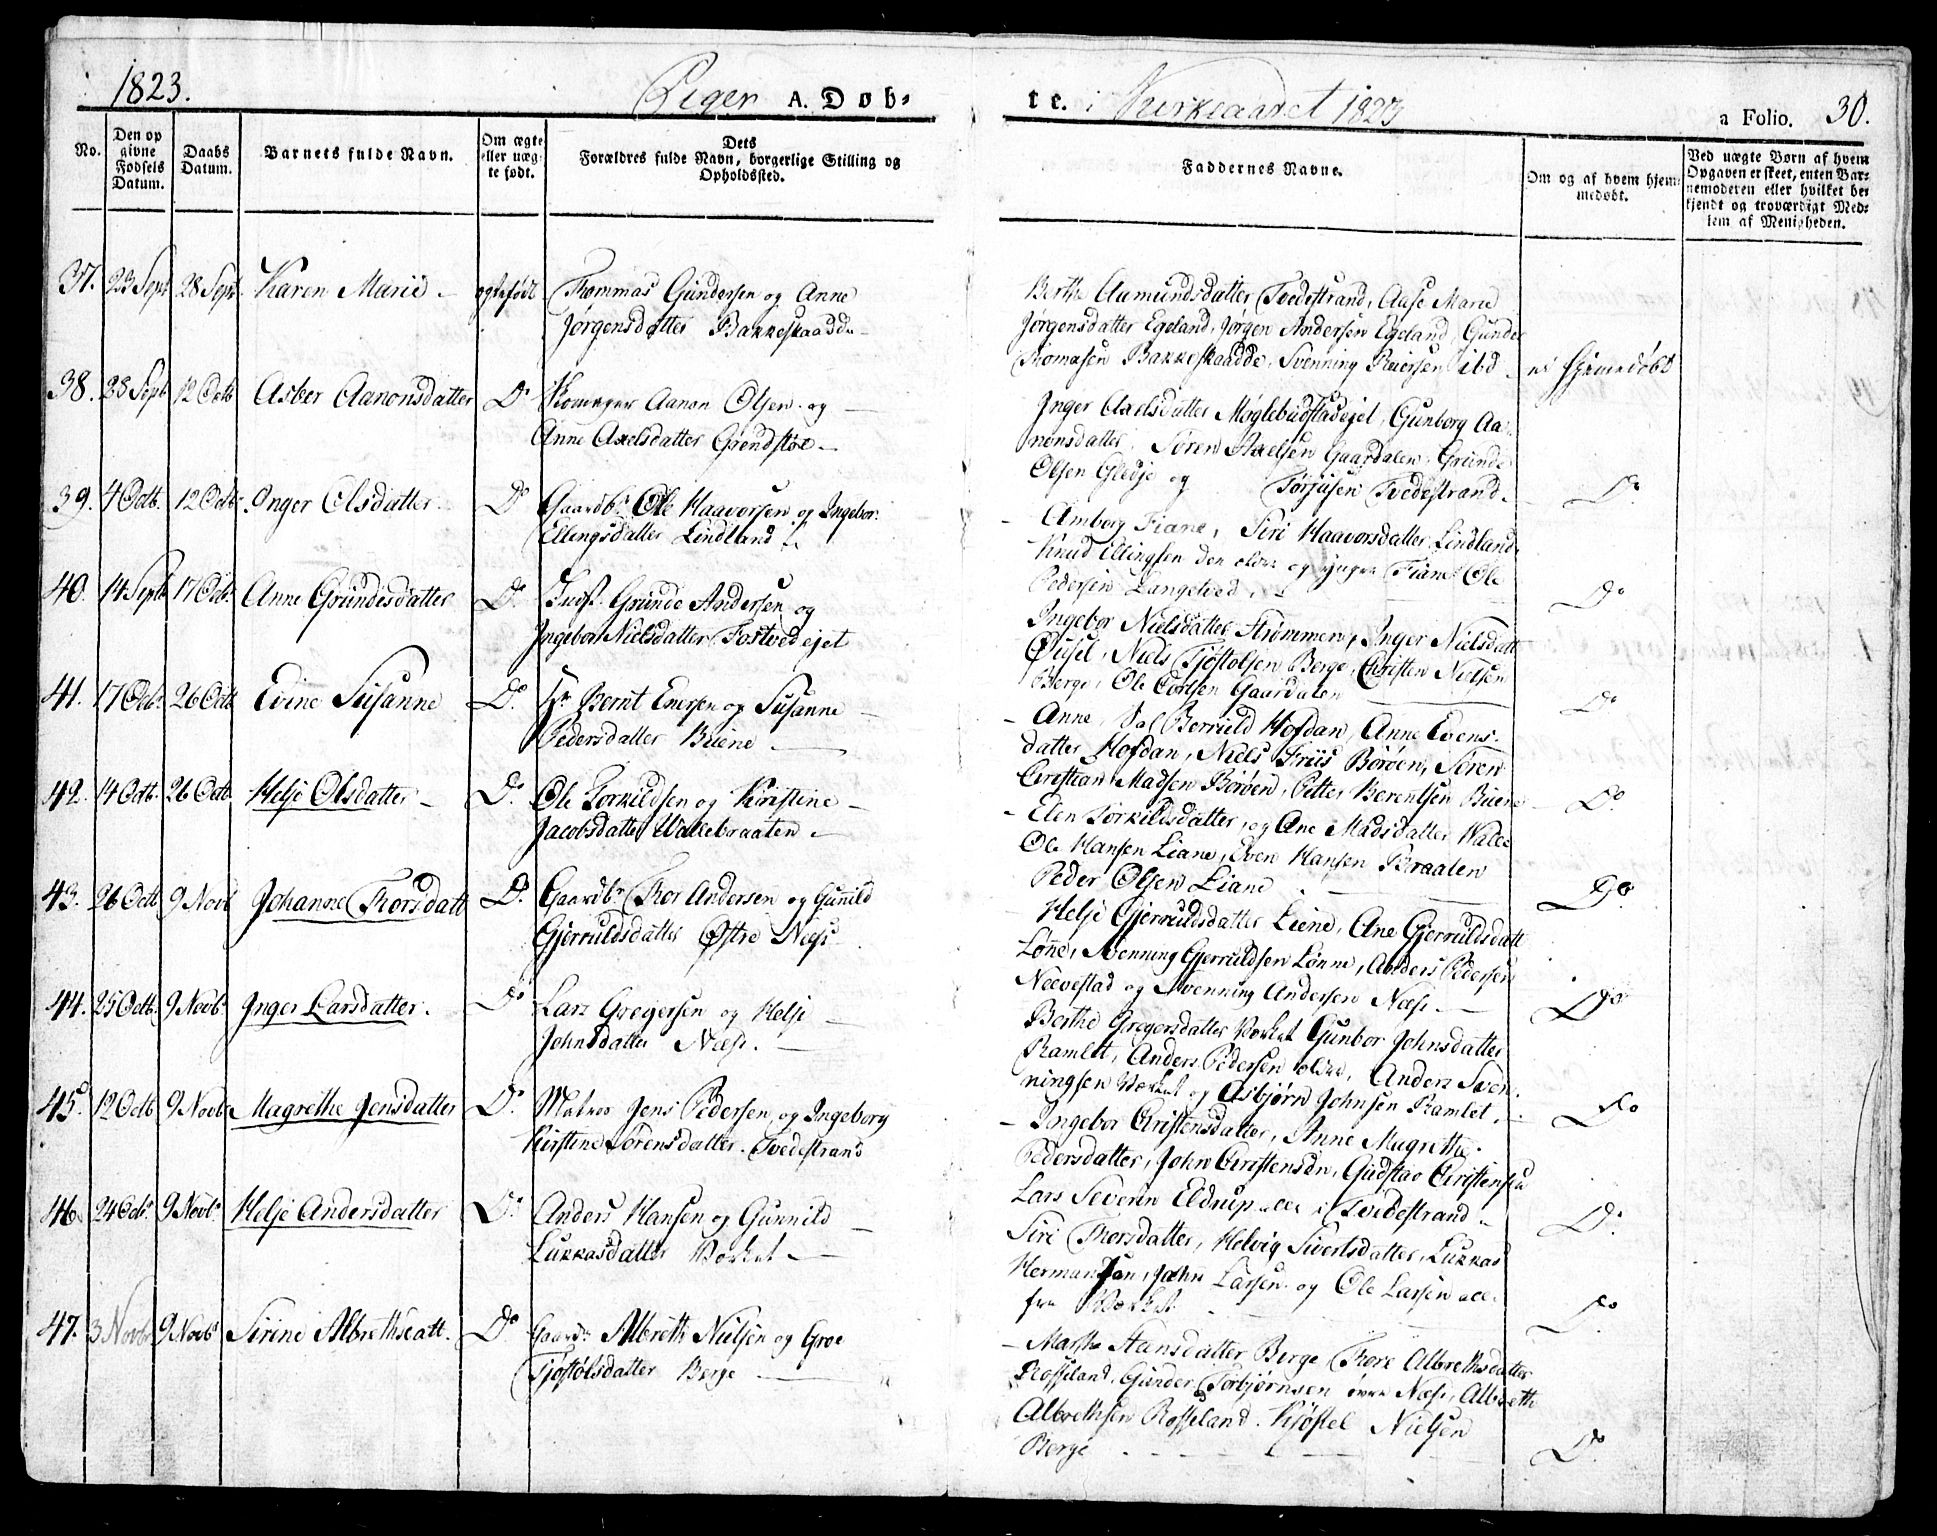 1823. Piger A. Døb-
te. i Kirkeaaret 1823 a Folio. 30.
No.
Den op
givne
Fødsels
Datum.
Daabs
Datum.
Barnets fulde Navn.
Om ægte
eller uæg-
te født.
Dets
Forældres fulde Navn, borgerlige Stilling og
Opholdssted.
Faddernes Navne.
Om og af hvem hjem-
medøbt.
Ved uægte Børn af hvem
Opgaven er skeet, enten Bar-
nemoderen eller hvilket be-
kjendt og troværdigt Med-
lem af Menigheden.
37. 23 Sept 28 Sept Karen Marie - ægtefødt Thommas Gundersen og Anne
Jørgensdatter Bakkeskaadde-
Berthe Aamundsdatter Tvedestrand, Aase Marie
Jørgensdatter Egeland, Jørgen Andersen Egeland, Gunder
Thomasen Bakkeskaadde, Svenning Reiersen ibd - ei hjemedøbt
38. 28 Sept 12 Octb Asber Aanonsdatter Do Aanon Olsen og
Anne Axelsdatter Grendstøl -
Inger Axelsdatter Møglebudstadejet, Gunborg Aa-
nonsdatter, Søren Axelsen Gaardalen, Grunde
Olsen Gledje og Torjusen Tvedestrand. Do
39. 4 Octb. 12 Octb. Inger Olsdatter. Do Gaardbr. Ole Haavorsen og Ingebor
Ellingsdatter Lindland
- Amborg Fiane, Siri Haavorsdatter Lindland,
Knud Ellingsen den eldre og yngre Fiane Ole
Pedersen Langelved Do
40. 14 Septb 17 Octb. Anne Grundesdatter Do. Indst. Grunde Andersen og
Ingebor Nielsdatter Fostvedejet
Ingebor Nielsdatter Strømmen, Inger Nielsdatt
Niels Tjøstolsen Berge, Christen Nielsen
Berge, Ole Gaardalen Do
41. 17 Octb. 26 Octb Edine Susanne Do. Hr Bernt Enersen og Susanne
Pedersdatter Buene -
- Anne, Sal. Berruld Hofdan, Anne Evens-
datter Hofdan, Niels Friis Børøen, Søren
Christian Madsen Børøen, Petter Berentsen Buene Do
42. 14 Octb. 26 Octb. Helje Olsdatter - Do. Ole Torkildsen og Kristine -
Jacobsdatter Wallebraaten -
- Elen Torkildsdatter, og Ane Madsdatter Walle
Ole Hansen Liane, Even Hansen Braaten
Peder Olsen Liane Do.
43. 26 Octb 9 Novb Johanne Thorsdatt Do. Gaardbr. Thor Andersen og Gunild
Gjerruldsdatter Østre Næss
Helje Gjerruldsdatter Liene, Ane Gjerruldsdatt
Lønne, Svenning Gjerruldsen Lønne, Anders Pedersen
Nævestad og Svenning Andersen Næss. - Do
44. 25 Octb. 9 Novb. Inger Larsdatter. Do Lars Gregersen og Helje -
Johnsdatter Næss. -
Berthe Gregersdatter Værket Gunbor Johnsdatter
Ramlet, Anders Pedersen Anders Sven-
ningsen Værket og Asbjørn Johnsen Ramlet. Do
45. 12 Octb 9 Novb. Magrethe Jensdatter Do. Matros Jens Pedersen og Ingeborg
Kirstine Sørensdatter. Tvedestrand
- Ingebor Christensdatter, Anne Magrethe
Pedersdatter, John Christensen, Gudstav Christensen
Lars Severin Eldrup alle i Tvedestrand Do.
46. 24 Octb. 9 Novb. Helje Andersdatter Do. Anders Hansen og Gunnild -
Lukkasdatter Værket -
Siri Thorsdatter, Helvig Sivertsdatter, Lukkas
Hermansen, John Larsen og Ole Larsen alle
fra Værket Do.
47. 3 Novbr 9 Novb. Sirine Albrethsdatt. Do. Gaardbr Albreth Nielsen og Groe
Tjøstolsdatter Berge -
- Marthe Berge, Thore Albrethsdatter
Rosseland, Gunder Torbjørnsen øvre Næss, Albreth
Albrethsen Rosseland. Kjøstel Nielsen
Berge Do.